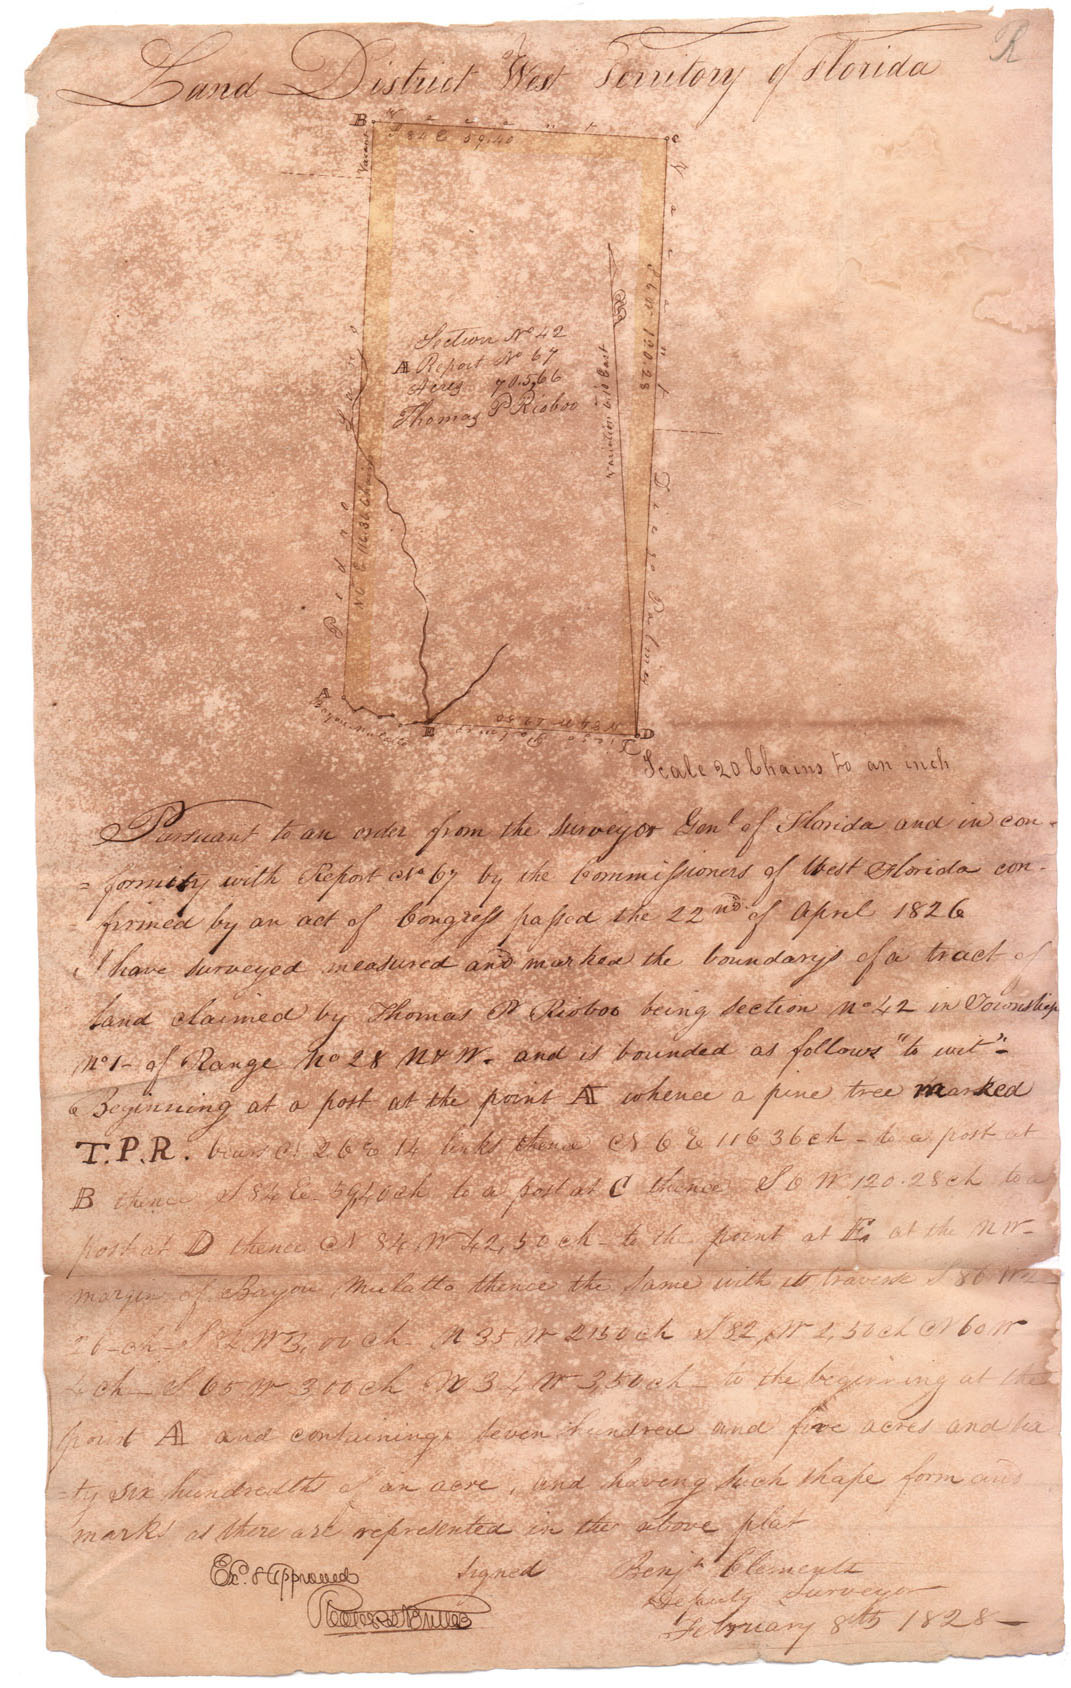 R
Land District West Territory of Florida
B
S 84 E 59.40
C
Vacant
Vacant
S 6 W 120.28
Section No 42
A Report No 67
Acres 705,66
Thomas P Rioboo
Variation 6.10 East
N 6 E 116.36 Chains
Diego Palmes
A
Bayou Mulatto
E
N 84 W 42 50
D
Scale 20 Chains to an inch
Pursuant to an order from the Surveyor Genl of Florida and in con-
=formity with Report No 67 by the Commissioners of West Florida con-
=firmed by an act of Congress passed the 22nd of April 1826
I have surveyed measured and marked the boundarys of a tract of
Land claimed by Thomas P Rioboo being section No 42 in Township
No 1- of Range No 28 N & W- and is bounded as follows "to wit"-
Beginning at a post at the point A whence a pine tree marked
T.P.R. bears N 26 E 14 links thence N 6 E 116 36 ch - to a post at
B thence S 84 E 59,40 ch to a post at C thence S 6 W 120.28 ch to a
post at D thence N 84 W 42,50 ch - to the point at E, at the N W-
margin of Bayou Mulatto thence the same with its traverse S 86 W 2-
26-ch- S 82 W 3,00 ch- N 35 W 2150 ch S 82, W 2,50 ch N 60 W
4 ch- S 65 W 3 00 ch N 34 W 3,50 ch - to the beginning at the
point A and containing seven hundred and five acres and six
=ty six hundredths of an acre, and having such shape form and
marks as there are represented in the above plat
Ex. & Approved
Signed Benjn Clements
Deputy Surveyor
Robert Butler
February 8th 1828-